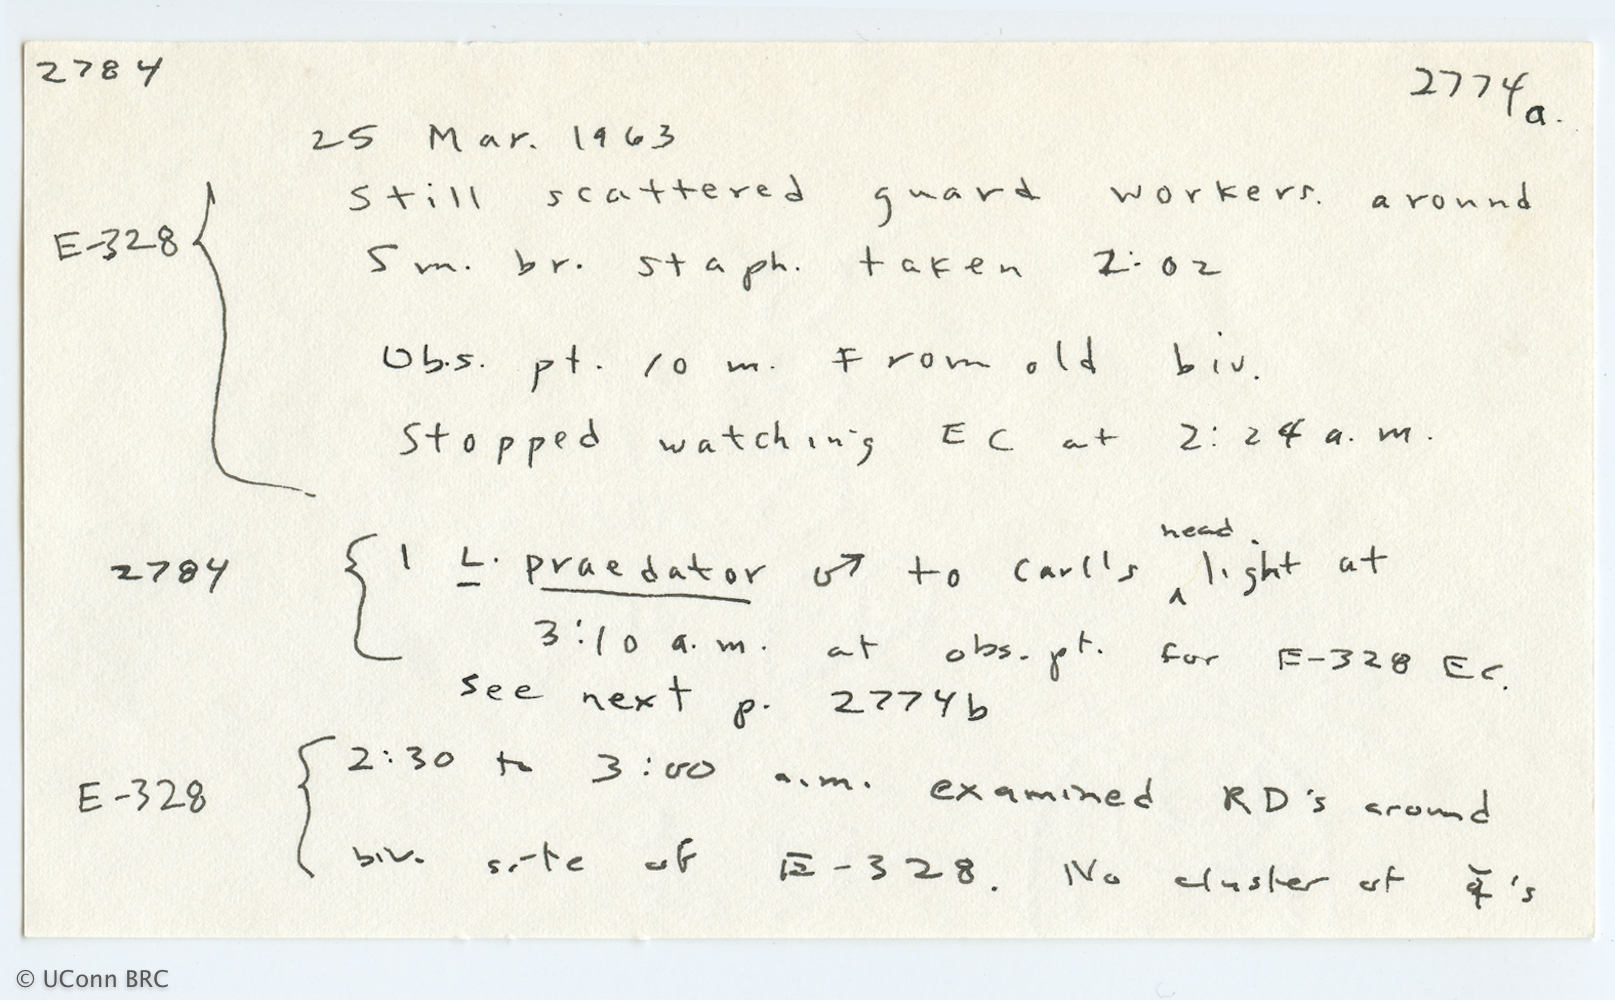 2784
2774a.
25 Mar. 1963
E-328 { Still scattered guard workers. around
5 m. br. staph. taken 2:02
Obs. pt. 10 m. From old biv.
Stopped watching EC at 2:24 a.m.
2784 { 1 L. praedator ♂ to Carl's ^head. light at
3:10 a.m. at obs. pt. for E-328 EC.
See next p. 2774b
E-328 { 2:30 to 3:00 a.m. examined RD's around
biv. site of E-328. No cluster of ☿'s
© UConn BRC